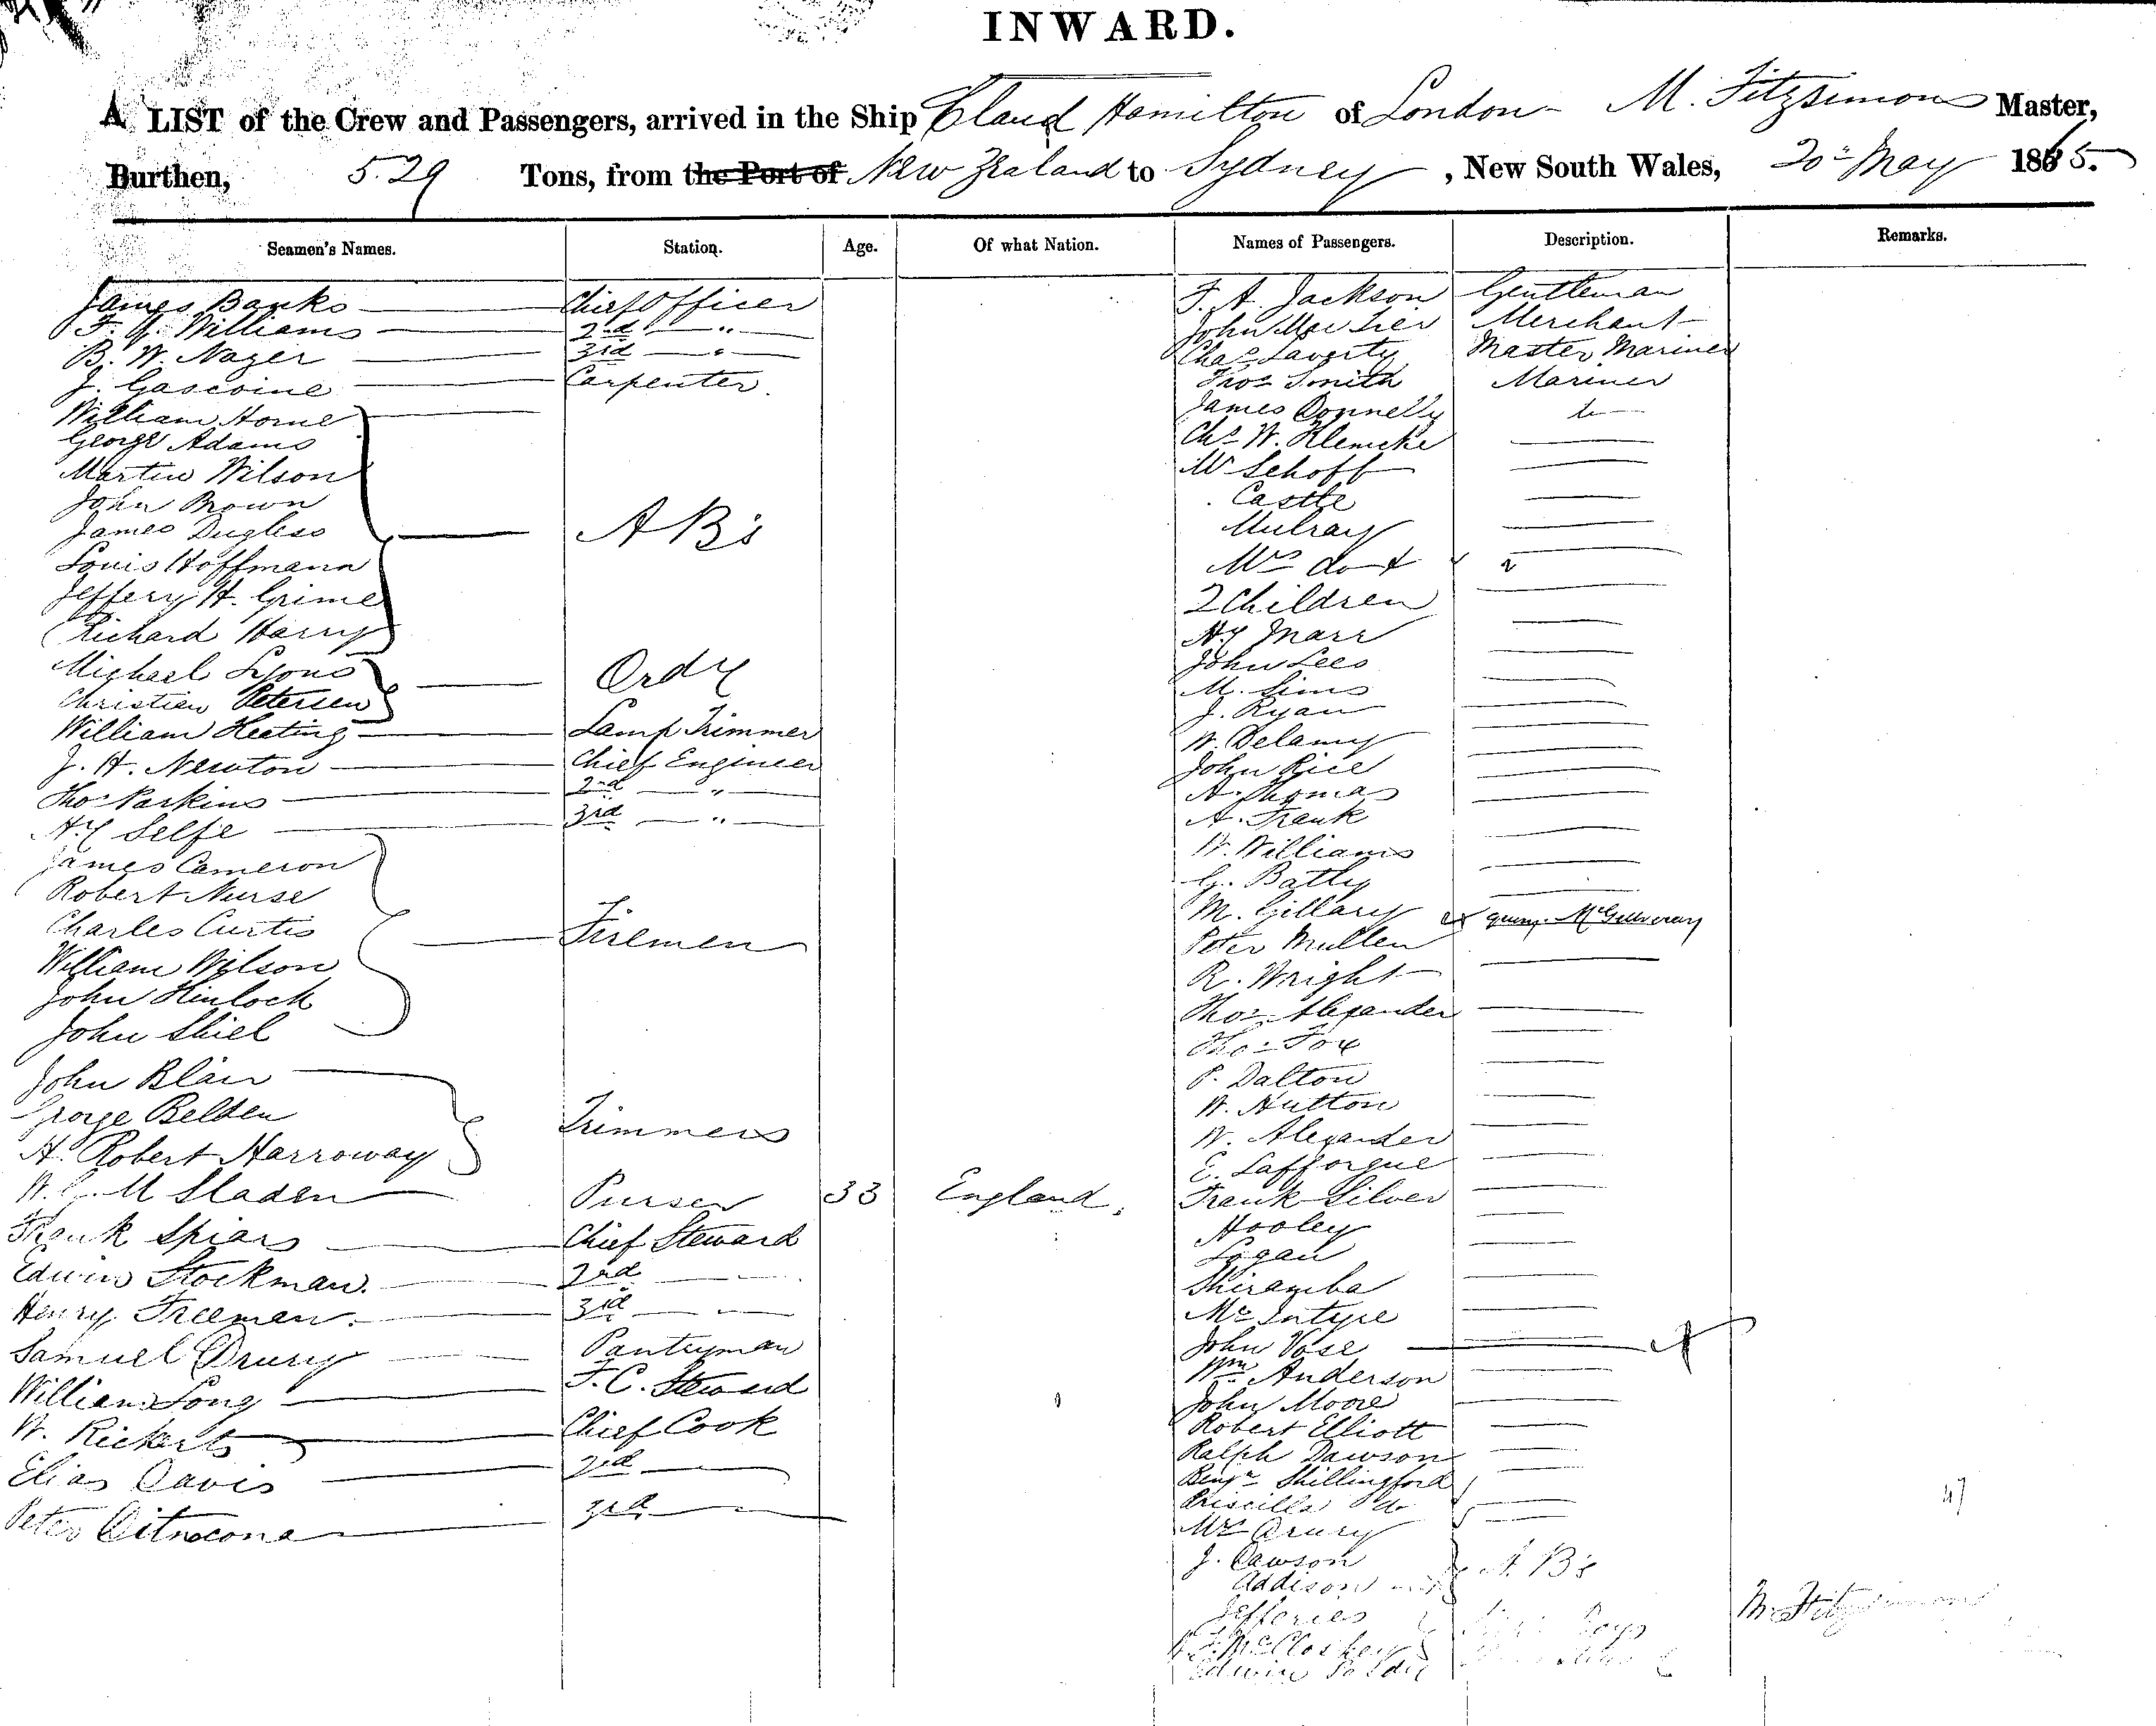 INWARD.
A LIST of the Crew and Passengers, arrived in the Ship Claud Hamilton of London M. Fitzsimons Master,
Burthen, 529 Tons, from the Port of New Zealand to Sydney, New South Wales, 20th May 1865.
Seamen's Names. Station. Age. Of what Nation. Names of Passengers. Description. Remarks.
James Banks Chief Officer F. A. Jackson Gentleman
Williams 2nd " John Merchant
B. W. Nazer 3rd " Chas Laverty Master Mariner
J. Gascoine Carpenter Thos Smith Mariner
William Horne James Donnelly
George Adams Chs W. Klemcke
Martin Wilson Mr Schoff
John Brown Castle
James Dugless A B's Mulray
Louis Hoffmann Mrs do
Jeffery H. Grime 2 Children
Richard Harry Hy Marr
Michael Lyons Ordy John Lees
Christian Petersen M. Sims
William Keating Lamp Trimmer J. Ryan
J. H. Newton Chief Engineer W. Delamy
Thos Parkins 2nd " John Rice
Hy Selfe 3rd " A. Thomas
James Cameron A. Frank
Robert Nurse W. Williams
Charles Curtis Firemen G. Batty
William Wilson M. Gillary query McGillveray
John Kinlock Peter Mullen
John Shiel R. Wright
John Blair Thos Alexander
George Belden Trimmers Thos Fox
H. Robert Harroway P. Dalton
W. M Sladen Purser 33 England W. Hutton
Frank Spiars Chief Steward W. Alexander
Edwin Stockman. 2nd E. Lafforgue
Henry Freeman. 3rd Frank Silver
Samuel Drury Pantryman Hooley
William Long F. C. Steward Logan
W. Rickerts Chief Cook Shiramba
Elias Davis 2nd McIntyre
Peter 3rd John Vose
Wm Anderson
John Moore
Robert Elliott
Ralph Dawson
Benjn Shillingford
Priscilla do
Mrs Drury
J. Dawson A. B's
Addison
Jefferies Boys
McCloskey
Edwin
47
M. Fitzsimons